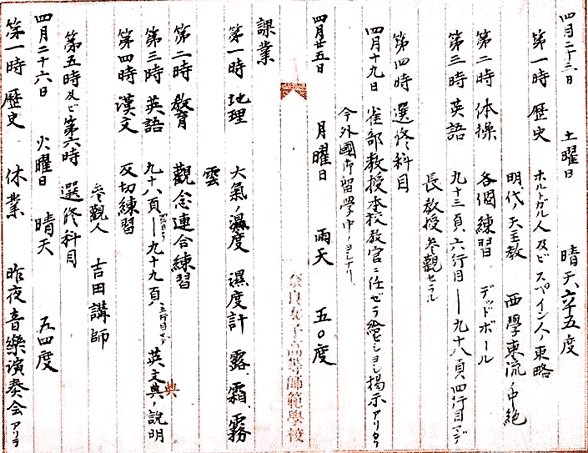 四月二十三日 土曜日 晴天 六五度
第一時 歴史 ホルトガル人及ビスペイン人ノ東略
明代天主教 西學東流ノ中絶
第二時 体操 各個練習 デッドボール
第三時 英語 九十三頁、六行目—九十八頁、四行目マデ
長教授参觀セラル
第四時 選修科目
四月十九日 雀部教授本校教官ニ任ゼラレ給ヒシヨシ掲示アリタリ
今外國御留學中ノヨシナリ
四月廿五日 月曜日 雨天 五〇度
課業
第一時 地理 大氣ノ濕度 濕度計 露 霜、霧
雲
第二時 教育 觀念連合練習
第三時 英語 九十八頁 四行目ヨリ—九十九頁、五行目マデ 英文典ノ説明
典
第四時 漢文 反切練習
参觀人 吉田講師
第五時及ビ第六時 選修科目
四月二十六日 火曜日 晴天 五四度
第一時 歴史 休業 昨夜音樂演奏会アリテ
奈良女子高等師範學校